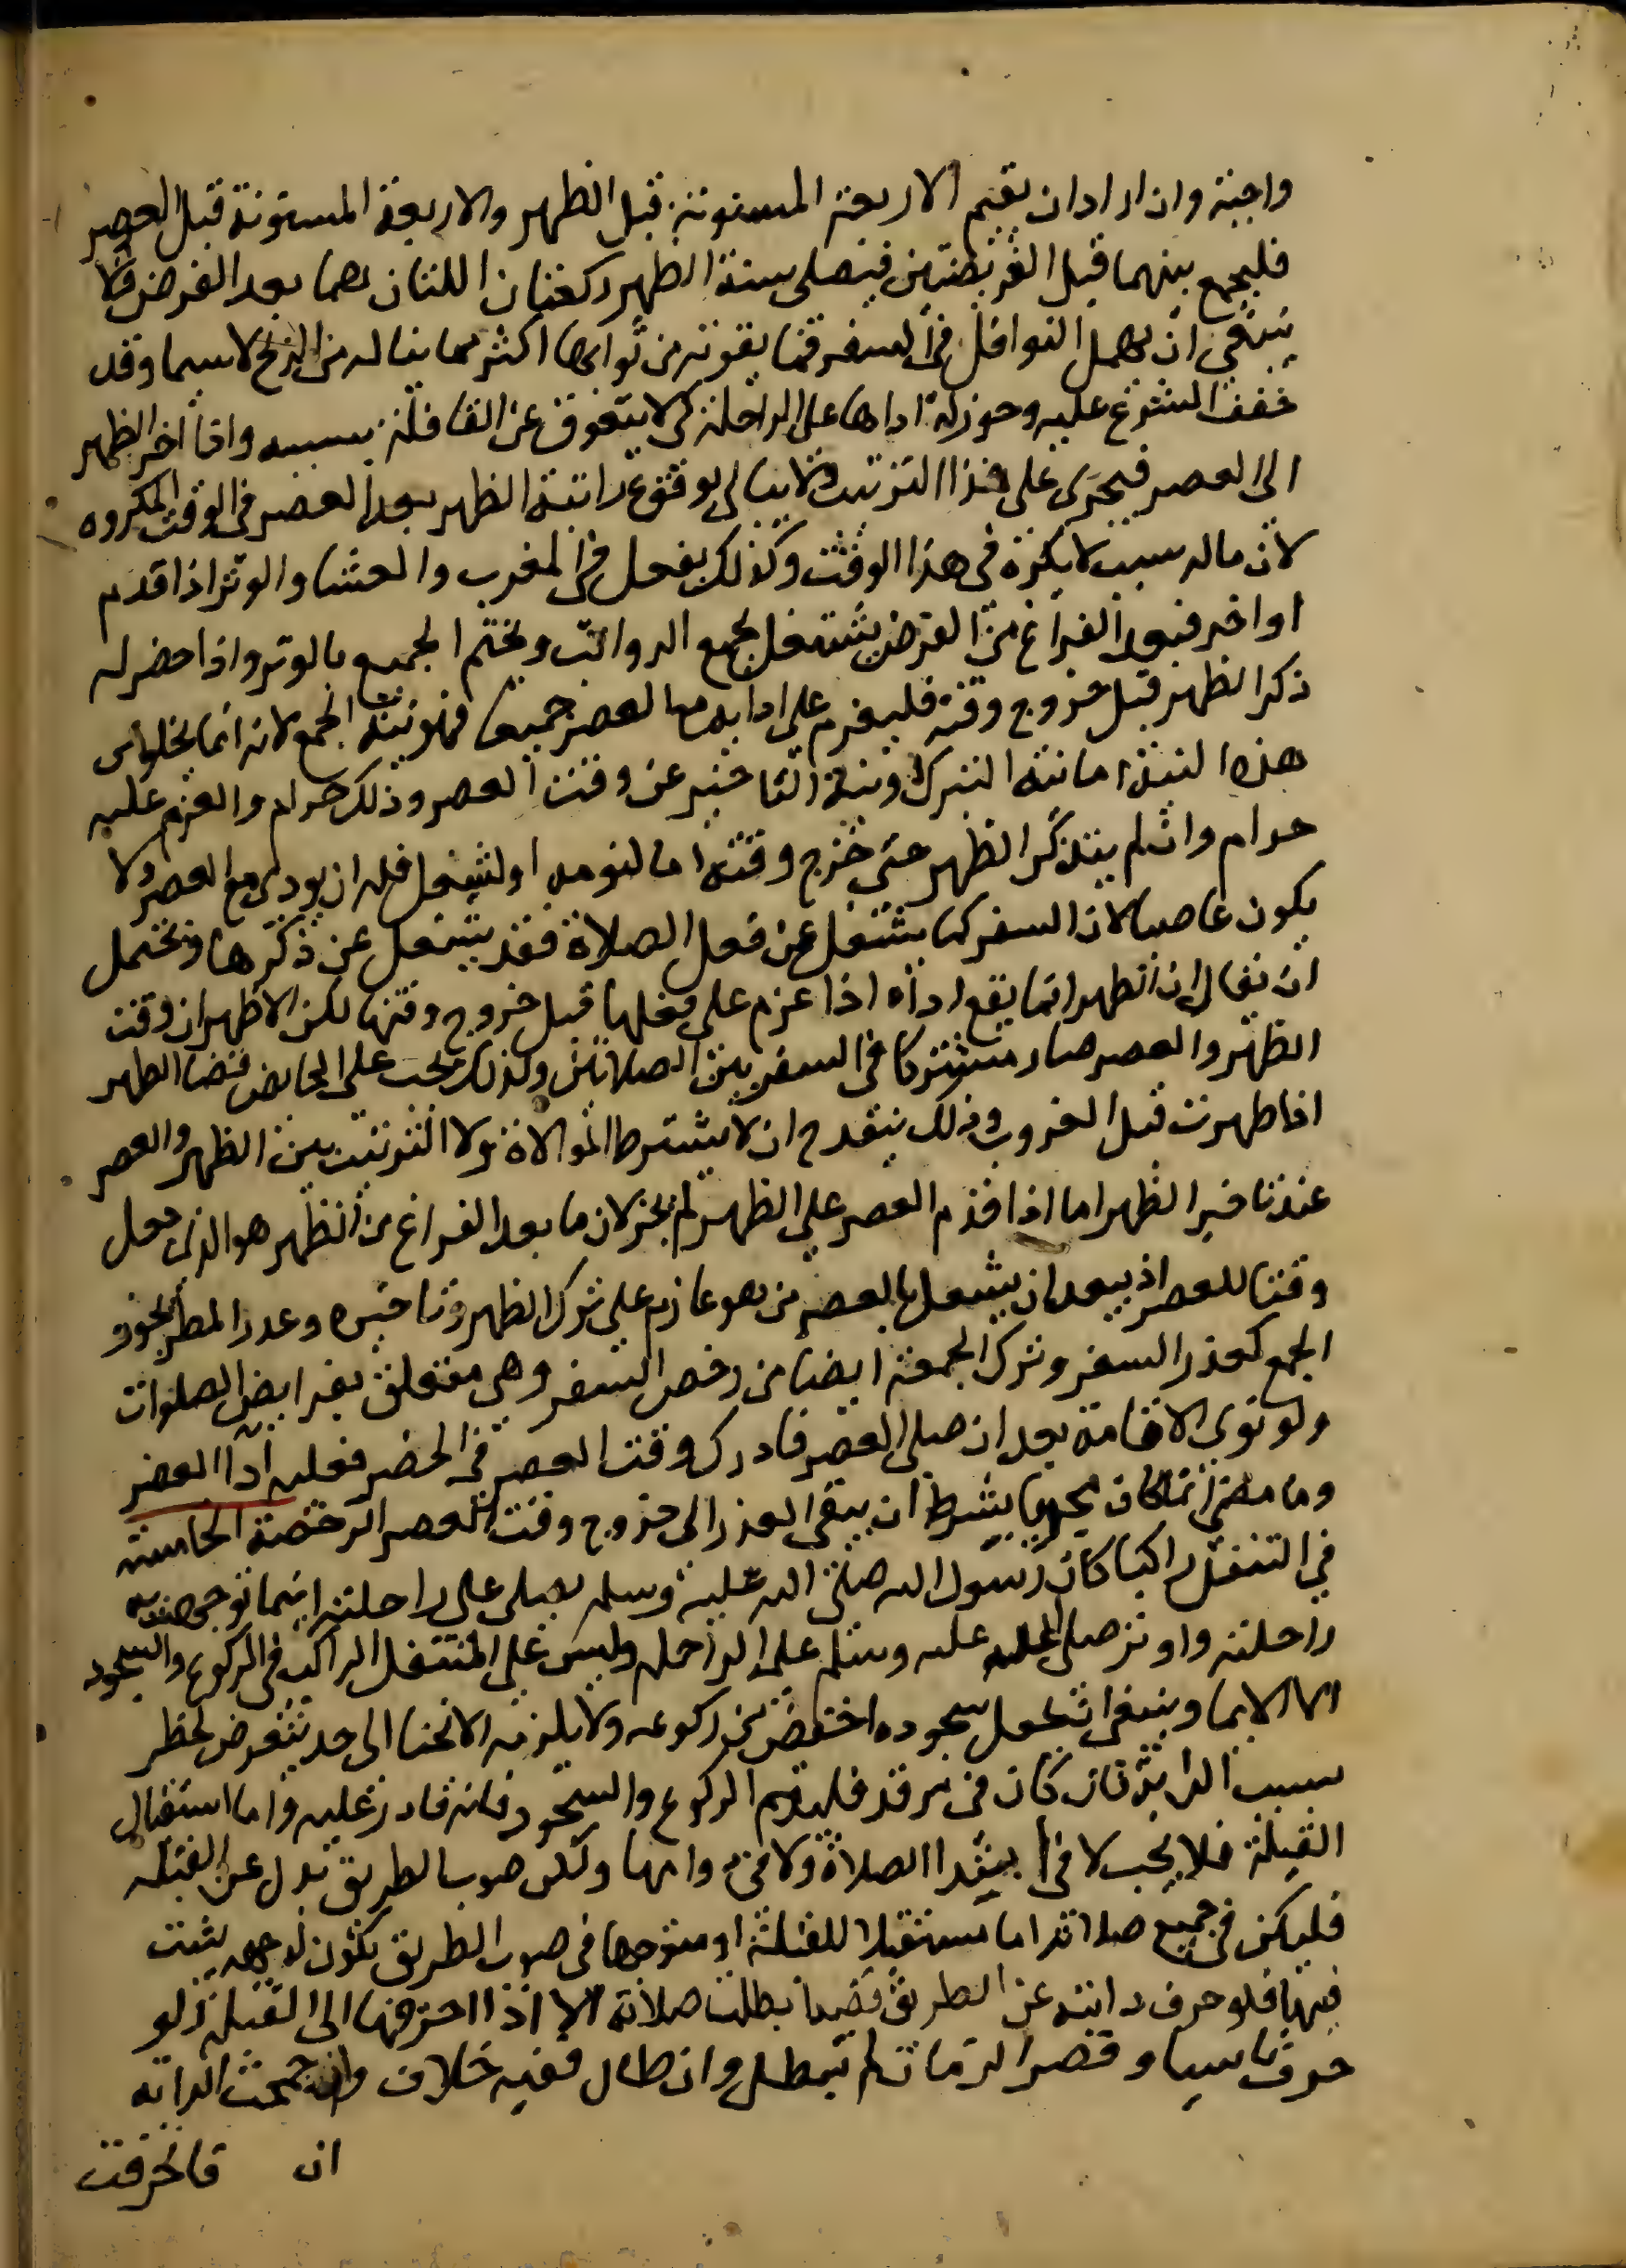 واجبة وان اراد ان يقيم الاربعة المسنونة قبل الظهر والاربعة المسنونة قبل العصر
فليجمع بينهما قبل الفريضتين فيصلى سنة الظهر ركعتان اللتان هما بعد الفرض ولا
ينبغى ان يهمل النوافل فى السفر فما يفوته من ثوابها اكثر مما يناله من الربح لاسيما وقد
خفف الشرع عليه وجوز له اداها على الراحلة كى لا يتعوق عن القافلة بسببه وان اخر الظهر
الى العصر فيجرى على هذا الترتيب ولا يبالى بوقوع راتبة الظهر بعد العصر فى الوقت المكروه
لان ماله سبب لا يكره فى هذا الوقت وكذلك يفعل فى المغرب والعشا والوتر اذا قدم
او اخر فبعد الفراغ من الفرض يشتغل بجمع الرواتب ويختم الجميع بالوتر واذا حضر له
ذكر الظهر قبل خروج وقته فليعزم على ادايه مع العصر جميعا فهو نية الجمع لانه انما يخلو عن
هذه النية اما نية الترك او نية التاخير عن وقت العصر وذلك حرام والعزم عليه
حرام وان لم يتذكر الظهر حتى خرج وقته اما لنومه او لشغل فله ان يودى مع العصر ولا
يكون عاصيا لان السفر كما يشغل عن فعل الصلاة فقد يشغل عن ذكرها ويحتمل
ان يقال ان الظهر انما يقع اداء اذا عزم على فعلها قبل خروج وقتها لكن الاظهر ان وقت
الظهر والعصر صار مشتركا فى السفر بين الصلاتين ولذلك يجب على الحايض قضا الظهر
اذا طهرت قبل الغروب وذلك ينقدح ان لا يشترط الموالاة ولا الترتيب بين الظهر والعصر
عند تاخير الظهر اما اذا قدم العصر على الظهر لم يجز لان ما بعد الفراغ من الظهر هو الذى جعل
وقتا للعصر اذ يبعد ان يشتغل بالعصر من هو عازم على ترك الظهر وتاخيره وعدر المطر يجوز
الجمع كعذر السفر وترك الجمعة ايضا من رخص السفر وهى متعلق بفرايض الصلوات
ولو نوى الاقامة بعد ان صلى العصر فادرك وقت العصر فى الحضر فعليه ادا العصر
وما مضى انما كان مجزيا بشرط ان يبقى العذر الى خروج وقت العصر الرخصة الخامسة
في التنفل راكبا كان رسول الله صلى الله عليه وسلم يصلى على راحلته اينما توجهت به
راحلته واوتر صلى الله عليه وسلم على الراحله وليس على المتنفل الراكب فى الركوع والسجود
الا الايما وينبغى ان يجعل سجوده اخفض من ركوعه ولا يلزمه الانحنا الى حد يتعرض لخطر
بسبب الدابة فان كان فى مرقد فليتم الركوع والسجود فانه قادر عليه واما استقبال
القبلة فلا يجب لا فى ابتدا الصلاة ولا فى دوامها ولكن صوب الطريق بدل عن القبله
فليكن فى جميع صلاته اما مستقبلا للقبلة او متوجها فى صوب الطريق تكون له جهه يثبت
فيها فلو حرف دابته عن الطريق قصدا بطلت صلاته الا اذا احترفها الى القبلة ولو
حرف ناسيا وقصر الزمان لم تبطل وان طال ففيه خلاف وان جمحت الدابه
ان فانحرفت